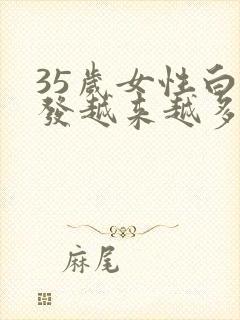 35歲女性白
發越来越多
麻尾